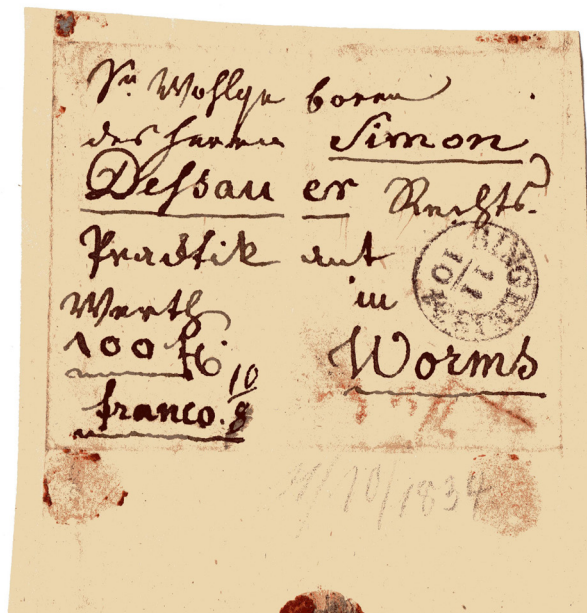 Sr. Wohlge boren
des Herren Simon
Dessau er Rechts-
Pracktik ant
Werth in
100 fl. Worms
franco. 10/8
BINGEN
11
10
11/10/1834